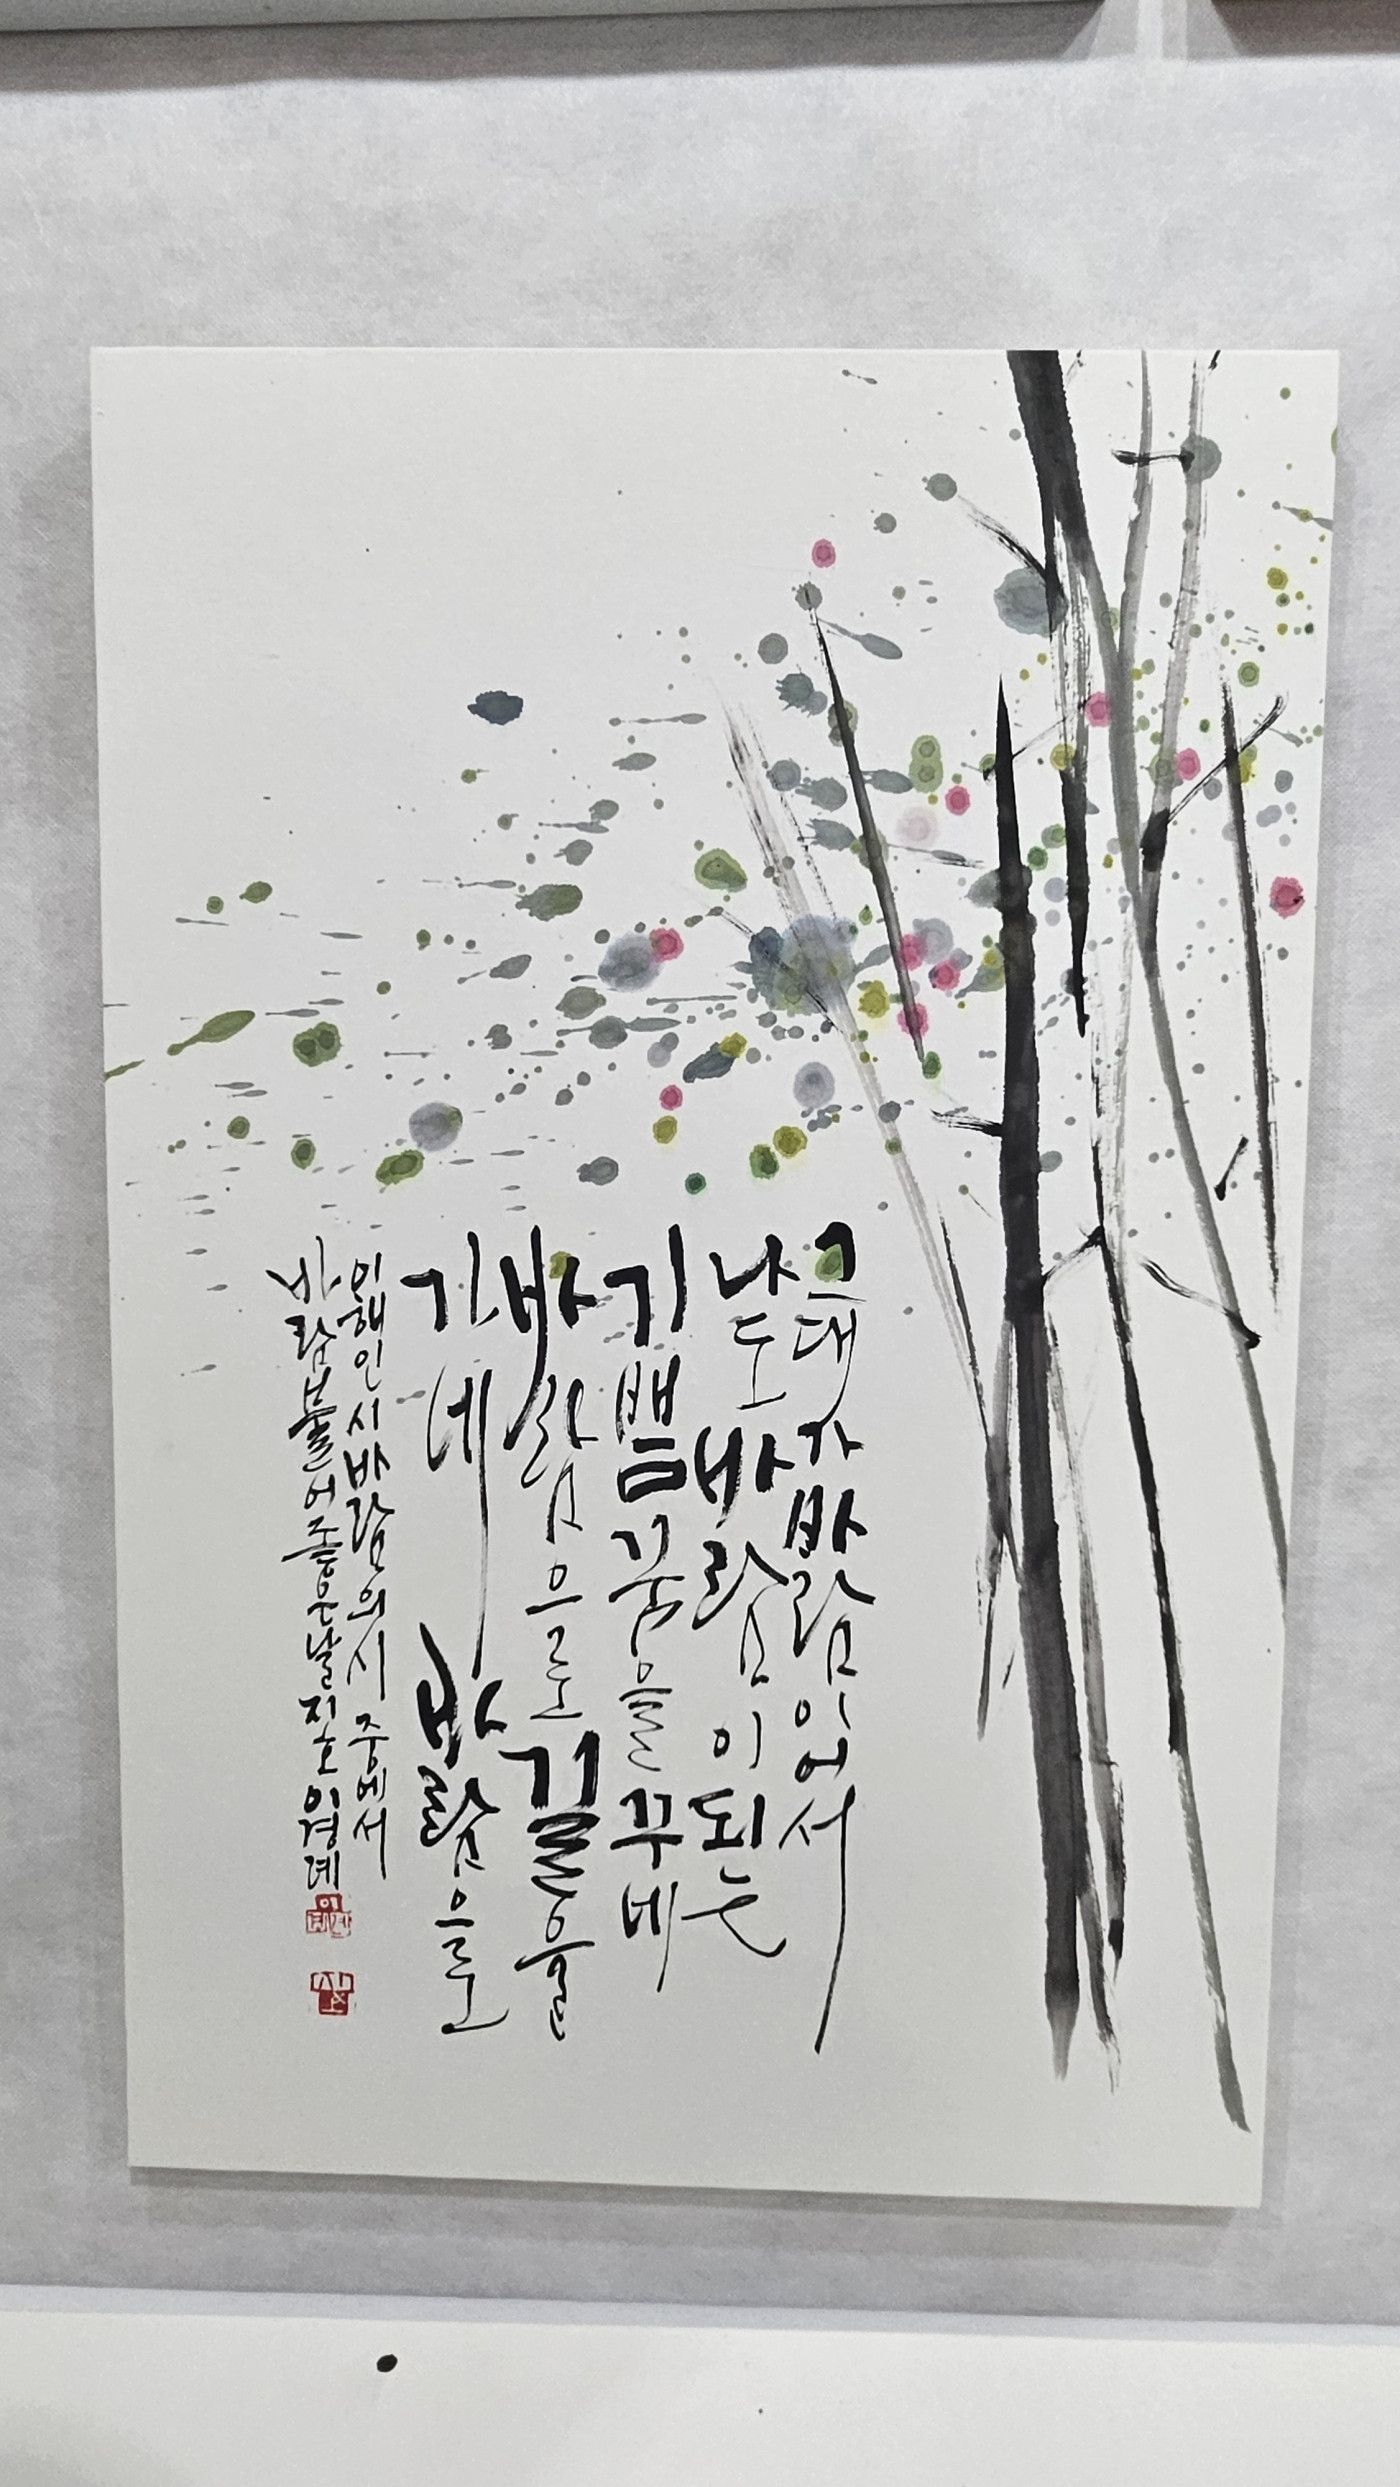 그대가 바람이어서
나도 바람이 되는
기쁨 꿈을 꾸네
바람으로 길을
가네 바람으로
이해인 시 바람의 시 중에서
바람 불어 좋은 날 이경례